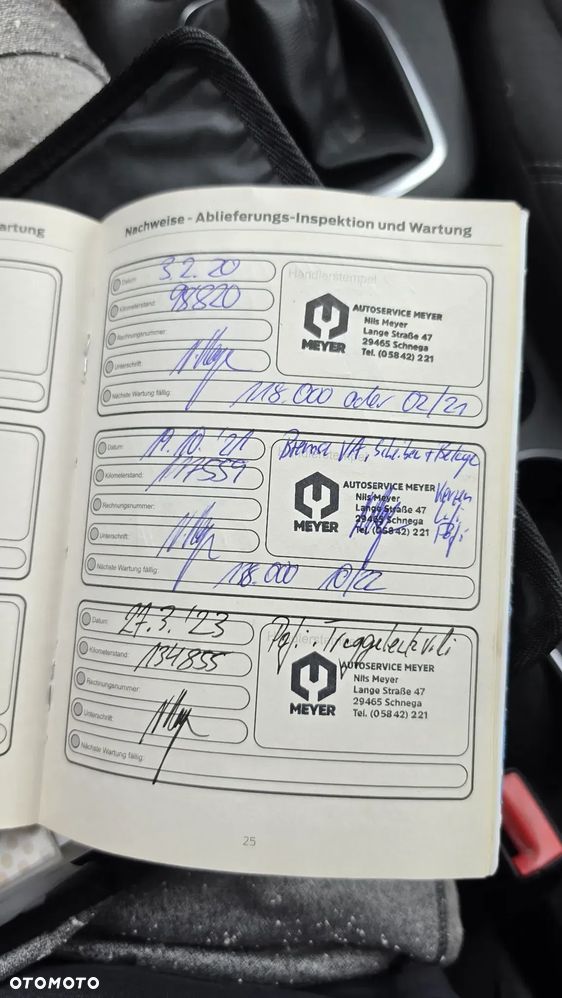 artung
Nachweise - Ablieferungs-Inspektion und Wartung
Datum: 3.2.20
Händlerstempel
Kilometerstand: 98820
Rechnungsnummer:
Unterschrift:
MEYER
AUTOSERVICE MEYER
Nils Meyer
Lange Straße 47
29465 Schnega
Tel. (0 58 42) 221
Nächste Wartung fällig: 118.000 oder 02/21
Datum: 19.10.'21
Bremse VA, Scheiben + Beläge
Kilometerstand: 117559
Rechnungsnummer:
Unterschrift:
MEYER
AUTOSERVICE MEYER
Nils Meyer
Lange Straße 47
29465 Schnega
Tel. (0 58 42) 221
Nächste Wartung fällig: 138.000 10/22
Datum: 27.3.'23
Händlerstempel
Kilometerstand: 134855
Rechnungsnummer:
Unterschrift:
MEYER
AUTOSERVICE MEYER
Nils Meyer
Lange Straße 47
29465 Schnega
Tel. (0 58 42) 221
Nächste Wartung fällig:
25
OTOMOTO